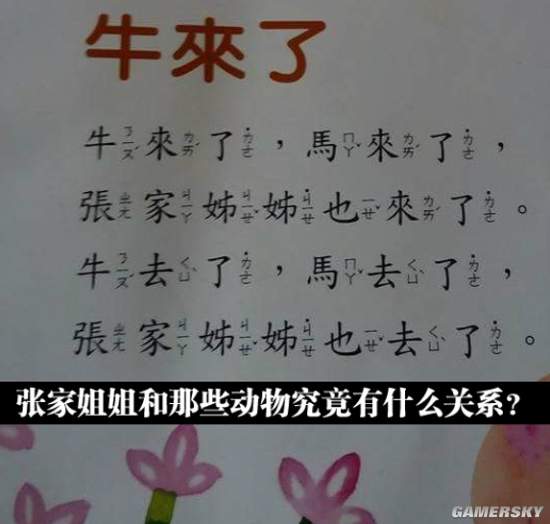 牛來了
牛ㄋㄧㄡˊ來ㄌㄞˊ了˙ㄌㄜ，馬ㄇㄚˇ來ㄌㄞˊ了˙ㄌㄜ，
張ㄓㄤ家ㄐㄧㄚ姊ㄐㄧㄝˇ姊˙ㄐㄧㄝ也ㄧㄝˇ來ㄌㄞˊ了˙ㄌㄜ。
牛ㄋㄧㄡˊ去ㄑㄩˋ了˙ㄌㄜ，馬ㄇㄚˇ去ㄑㄩˋ了˙ㄌㄜ，
張ㄓㄤ家ㄐㄧㄚ姊ㄐㄧㄝˇ姊˙ㄐㄧㄝ也ㄧㄝˇ去ㄑㄩˋ了˙ㄌㄜ。
张家姐姐和那些动物究竟有什么关系？
GAMERSKY